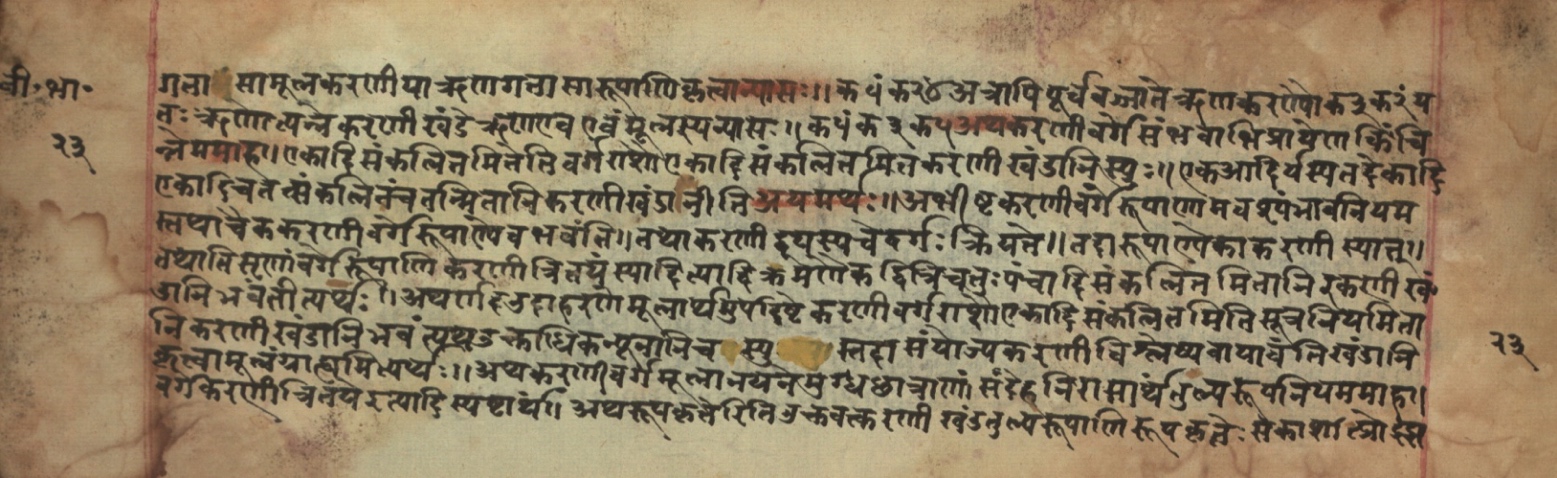 बी॰ भा॰
२३
गता सा मूलकरणी या ऋणगता सा रूपाणि कृत्वा न्यासः ॥ क ५ं क २४ अत्रापि पूर्वव ज्जाते ऋणकरण्यौ क ३ं क रं य
तः ऋणात्पन्ने करणीखंडे ऋणे एव एवं मूलस्य न्यासः ॥ क ५ं क ३ क ५ अथ करणीवर्गे संभवाभिप्रायेण किंचि
न्नेममाह ॥ एकादिसंकलितमितेति वर्गराशौ एकादिसंकलितमितकरणीखंडानि स्युः ॥ एक आदिर्यस्य तदेकादि
एकादि च तत्संकलितं च तन्मितानि करणीखंडानीति अयमर्थः ॥ अभीष्टकरणीवर्गे रूपाणामवश्यंभावनियम
स्तथा चैककरणीवर्गे रूपाण्येव भवंति ॥ तथा करणीद्वयस्य चेद्वर्गः क्रियते ॥ तदा रूपाण्येका करणी स्यात् ॥
तथा तिसृणां वर्गे रूपाणि करणीत्रितयं स्यादित्यादिक्रमेणैकद्वित्रिचतुःपंचादिसंकलितमितानि करणीखं
डानि भवंतीत्यर्थः ॥ अथ उदाहरणे मूलार्थमुपदिष्टे करणीवर्गराशौ एकादिसंकलितमिति सूत्रनियमिता
नि करणीखंडानि भवंत्यथ उक्ताधिकन्यूनानि च स्यु स्तदा संयोज्य करणी विश्लिष्य वा यावंति खंडानि
कृत्वा मूलं ग्राह्यमित्यर्थः ॥ अथ करणीवर्गमूलानयने मुग्धछात्राणां संदेहनिरासार्थं तुल्यरूपनियममाह ॥
वर्गे करणीत्रितये इत्यादि स्पष्टार्थं ॥ अथ रूपकृतेरिति उक्तवत्करणीखंडतुल्यरूपाणि रूपकृतेः सकाशात्
२३